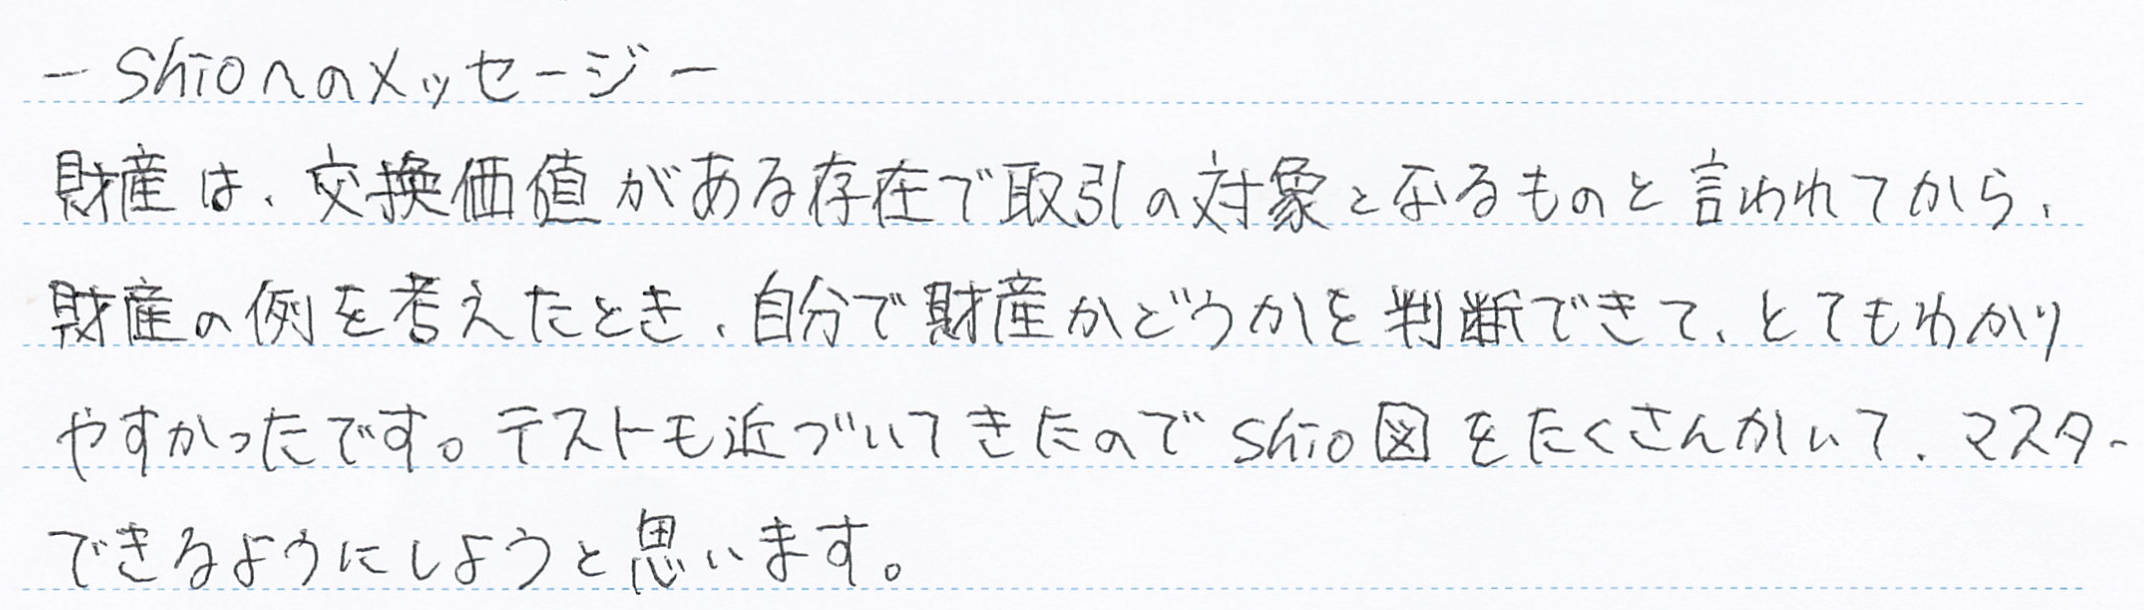 ーShioへのメッセージー
財産は、交換価値がある存在で取引の対象となるものと言われてから、
財産の例を考えたとき、自分で財産かどうかを判断できて、とてもわかり
やすかったです。テストも近づいてきたのでShio図をたくさんかいて、マスター
できるようにしようと思います。